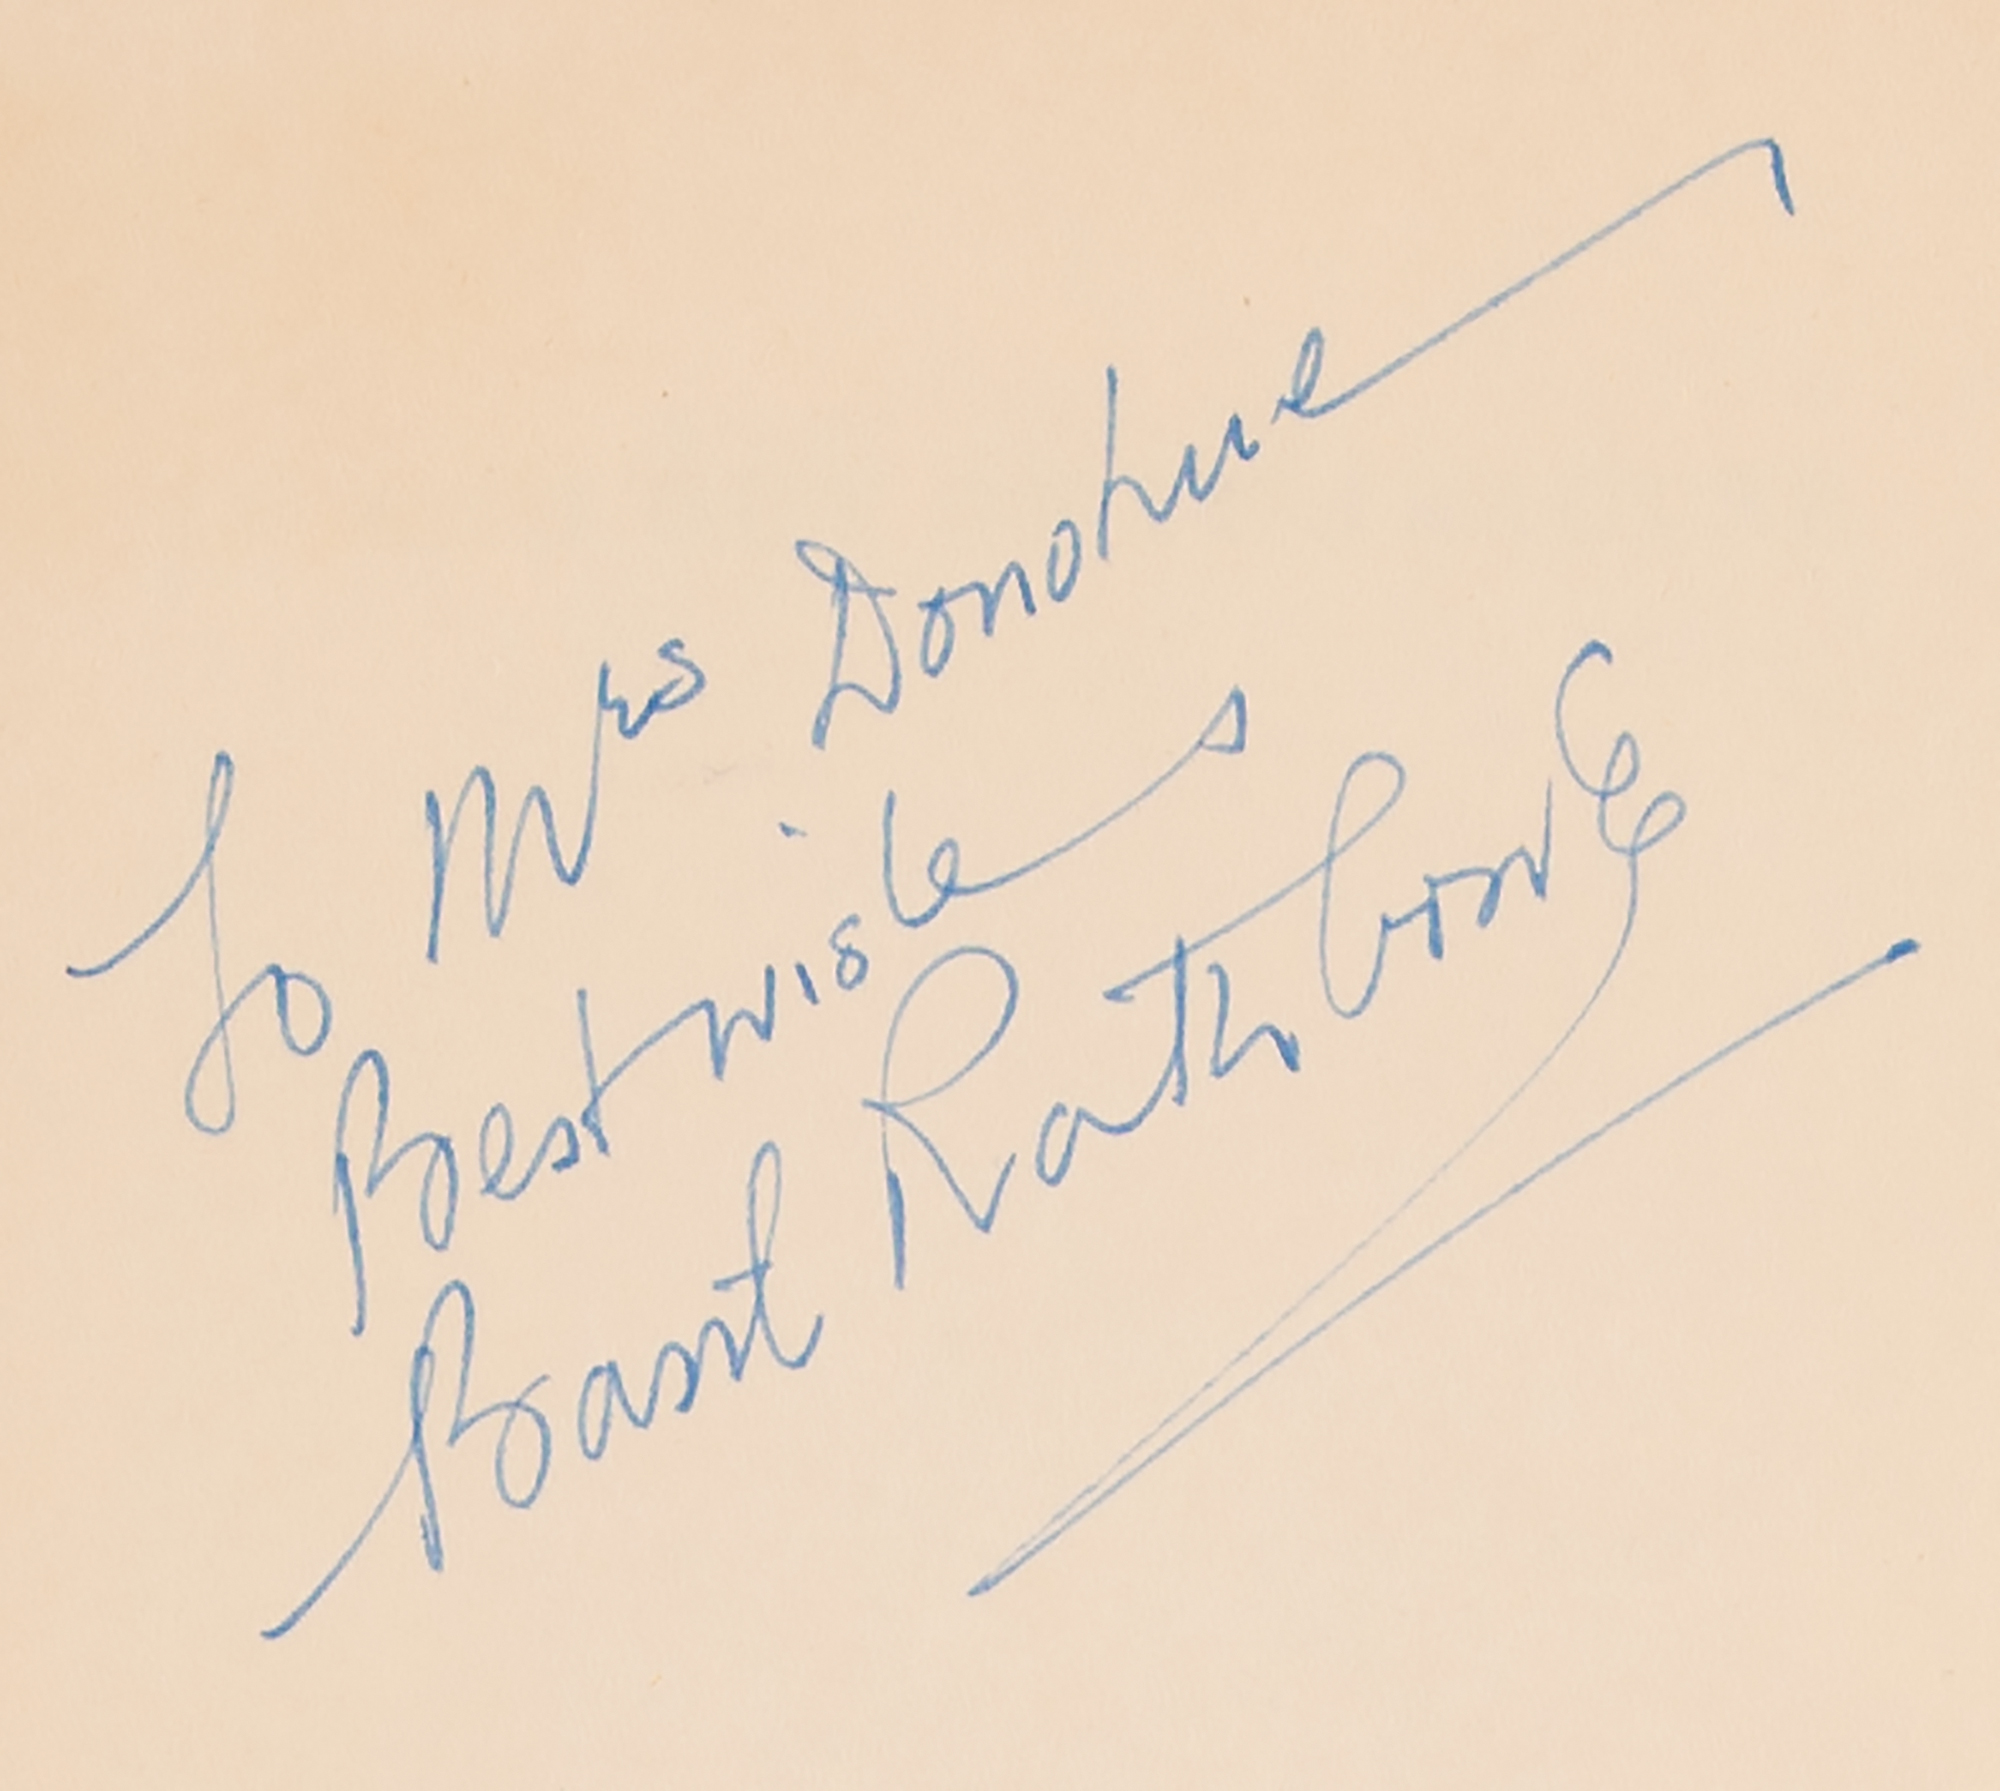 To Mrs Donohue
Best wishes
Basil Rathbone